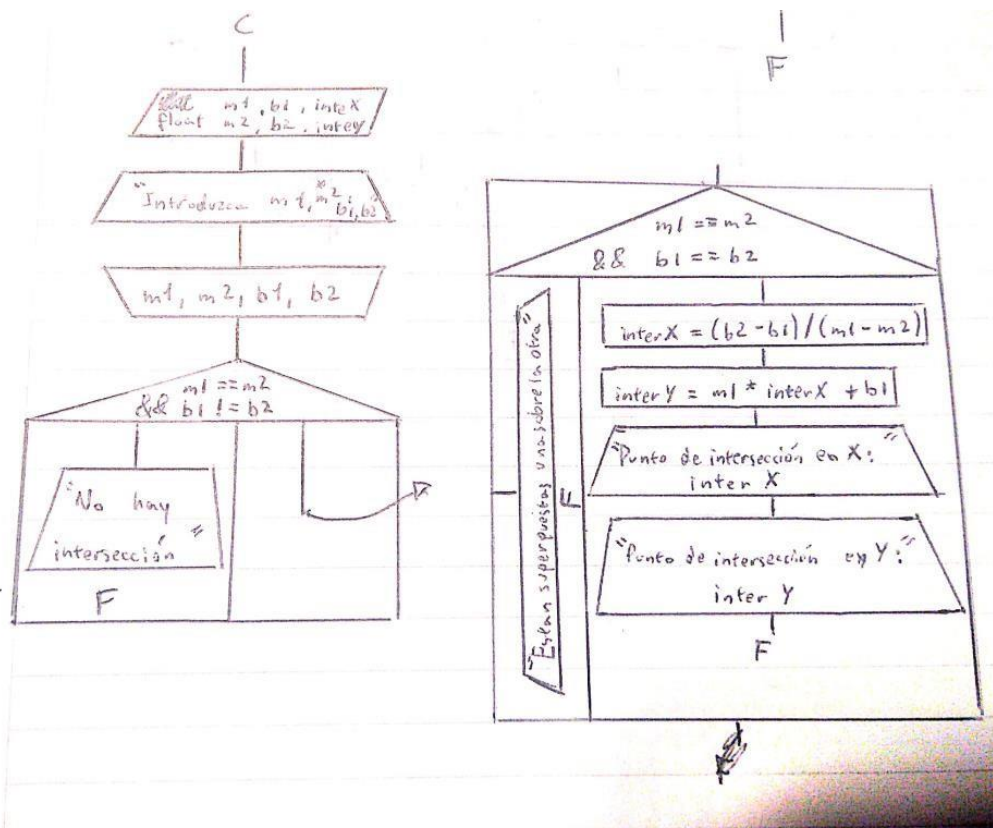 C
m1, b1, inteX
float m2, b2, intey
"Introduzca m1, m2
b1, b2"
m1, m2, b1, b2
m1 == m2
&& b1 != b2
"No hay
intersección"
F
F
m1 == m2
&& b1 == b2
"Estan superpuestas una sobre la otra"
F
interX = (b2-b1)/(m1-m2)
interY = m1 * interX + b1
"Punto de intersección en X:"
inter X
"Punto de intersección en Y:"
inter Y
F